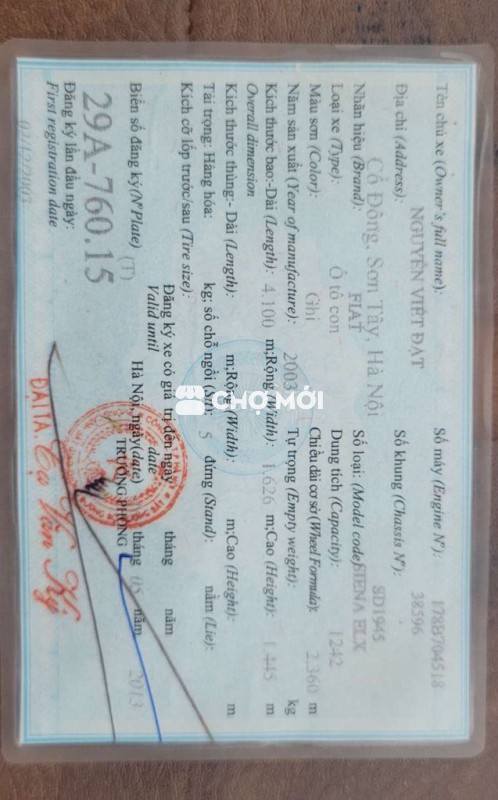 Tên chủ xe (Owner's full name): Số máy (Engine Nº): 178B704518
NGUYỄN VIẾT ĐẠT 38596
Địa chỉ (Address): Số khung (Chassis Nº): SD1945
Cổ Đông, Sơn Tây, Hà Nội
Nhãn hiệu (Brand): FLAT Số loại: (Model code) SIENA ELX
Loại xe (Type): Ô tô con Dung tích (Capacity): 1242
Màu sơn (Color): Ghi Chiều dài cơ sở (Wheel Formula): 2.360 m
Năm sản xuất (Year of manufacture): 2003 Tự trọng (Empty weight): kg
Kích thước bao:-Dài (Length): 4.100 m;Rộng (Width): 1.626 m;Cao (Height): 1.445 m
Overall dimension
Kích thước thùng:- Dài (Length): m;Rộng (Width): m;Cao (Height): m
Tải trọng: Hàng hóa: kg; số chỗ ngồi (Sit): 5 đứng (Stand): nằm (Lie):
Kích cỡ lốp trước/sau (Tire size):
Đăng ký xe có giá trị đến ngày tháng năm
Valid until date
Biển số đăng ký(Nº Plate) (T) Hà Nội, ngày(date) tháng 05 năm 2013
29A-760.15 TRƯỞNG PHÒNG
Đăng ký lần đầu ngày:
First registration date
02/12/2003
ĐẠI TÁ. Tạ Văn Kỳ
CHỢ MỚI